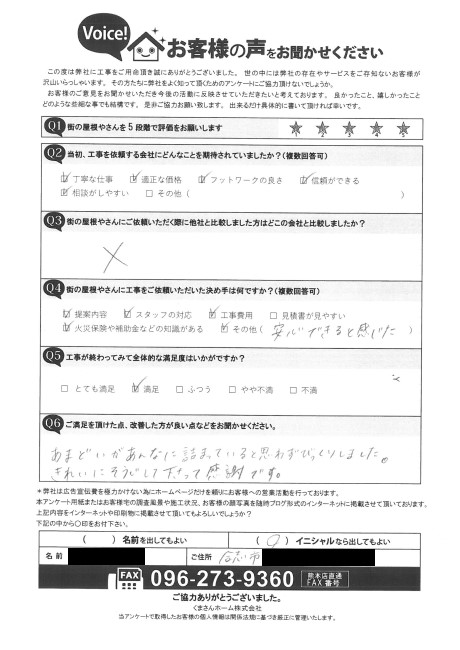 Voice!
お客様の声をお聞かせください
この度は弊社に工事をご用命頂き誠にありがとうございました。 世の中には弊社の存在やサービスをご存知ないお客様が
沢山いらっしゃいます。その方たちに弊社をよく知って頂くためのアンケートにご協力頂けないでしょうか。
お客様のご意見をお聞かせいただき今後の活動に反映させていただきたいと考えております。 良かったこと、嬉しかったこと
どのような些細な事でも結構です。 是非ご協力お願い致します。 出来るだけ具体的に書いて頂ければ幸いです。
Q1 街の屋根やさんを5段階で評価をお願いします
1 2 3 4 5
Q2 当初、工事を依頼する会社にどんなことを期待されていましたか?(複数回答可)
☑ 丁寧な仕事 ☑ 適正な価格 ☑ フットワークの良さ ☑ 信頼ができる
☑ 相談がしやすい □ その他 ( )
Q3 街の屋根やさんにご依頼いただく際に他社と比較しました方はどこの会社と比較しましたか?
×
Q4 街の屋根やさんに工事をご依頼いただいた決め手は何ですか?(複数回答可)
☑ 提案内容 ☑ スタッフの対応 ☑ 工事費用 □ 見積書が見やすい
☑ 火災保険や補助金などの知識がある ☑ その他 ( 安心できると感じた )
Q5 工事が終わってみて全体的な満足度はいかがですか?
□ とても満足 ☑ 満足 □ ふつう □ やや不満 □ 不満
Q6 ご満足を頂けた点、改善した方が良い点などをお聞かせください。
あまどいがあんなに詰まっていると思わずびっくりしました。
きれいにそうじして下さって感謝です。
*弊社は広告宣伝費を極力かけない為にホームページだけを頼りにお客様への営業活動を行っております。
本アンケート用紙またはお客様宅の調査風景や施工状況、お客様の顔写真を随時ブログ形式のインターネットに掲載させて頂いております。
上記内容をインターネットや印刷物に掲載させて頂いてもよろしいでしょうか?
下記の中から〇印をお付下さい。
( ) 名前を出してもよい ( 〇 ) イニシャルなら出してもよい
名前 ご住所 合志市
FAX 096-273-9360 熊本店直通 FAX番号
ご協力ありがとうございました。
くまさんホーム株式会社
当アンケートで取得したお客様の個人情報は関係法規に基づき厳正に管理いたします。